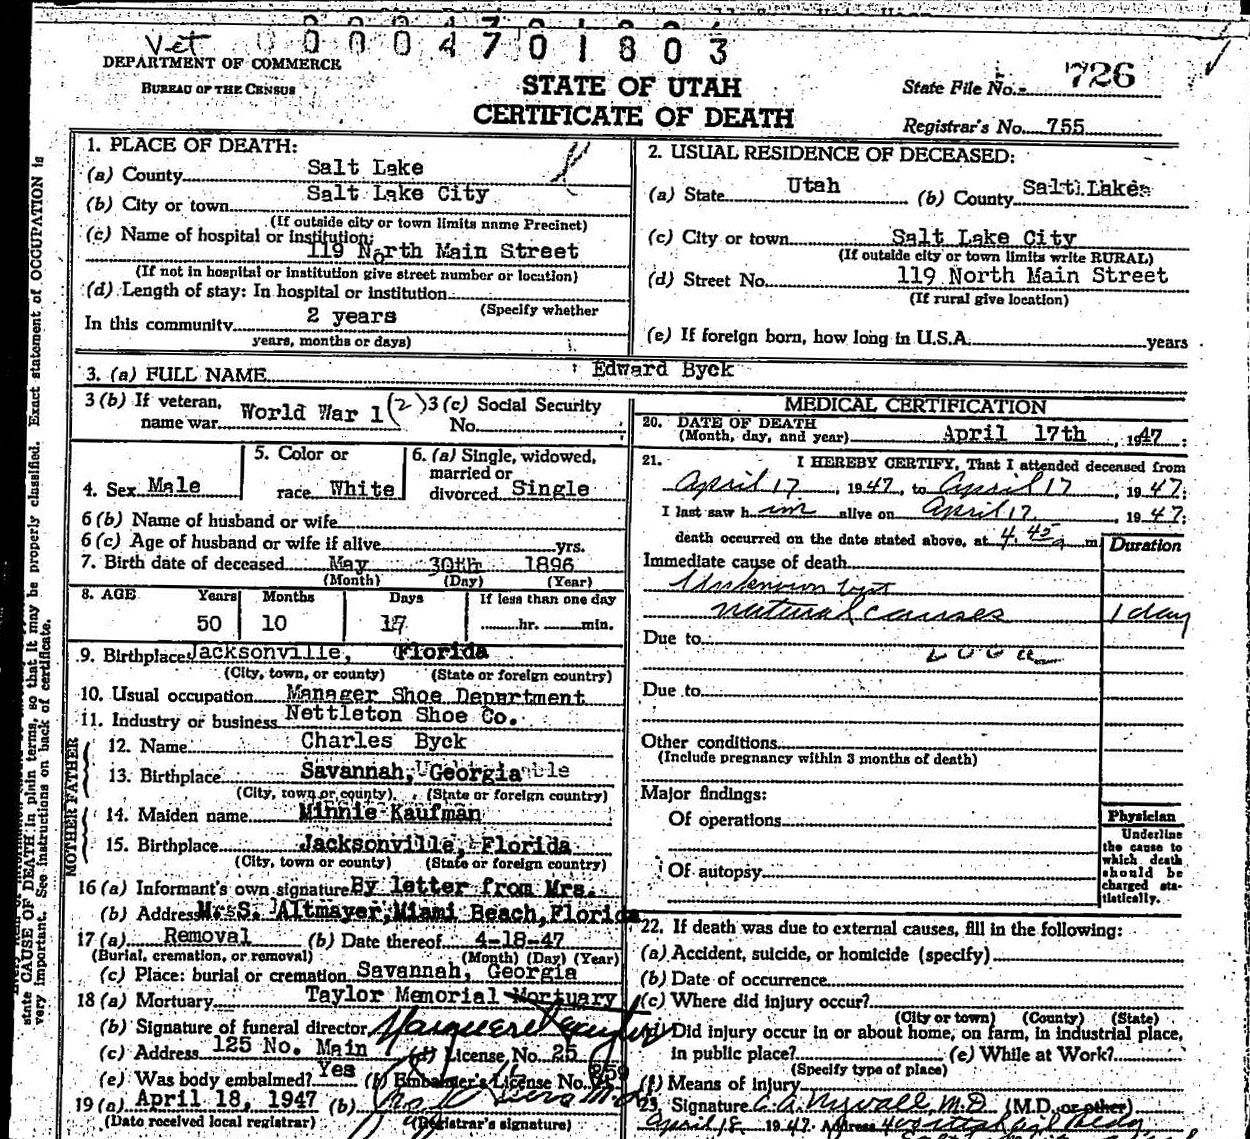 0004701803
Vet
DEPARTMENT OF COMMERCE
BUREAU OF THE CENSUS
STATE OF UTAH
CERTIFICATE OF DEATH
State File No. 726
Registrar's No. 755
1. PLACE OF DEATH:
(a) County Salt Lake
(b) City or town Salt Lake City
(If outside city or town limits name Precinct)
(c) Name of hospital or institution:
119 North Main Street
(If not in hospital or institution give street number or location)
(d) Length of stay: In hospital or institution
(Specify whether
In this community 2 years
years, months or days)
2. USUAL RESIDENCE OF DECEASED:
(a) State Utah (b) County Salt Lake
(c) City or town Salt Lake City
(If outside city or town limits write RURAL)
(d) Street No. 119 North Main Street
(If rural give location)
(e) If foreign born, how long in U.S.A. years
3. (a) FULL NAME Edward Byck
3 (b) If veteran, name war World War 1 (2)
3 (c) Social Security No.
4. Sex Male
5. Color or race White
6. (a) Single, widowed, married or divorced Single
6 (b) Name of husband or wife
6 (c) Age of husband or wife if alive yrs.
7. Birth date of deceased May 30th 1896
(Month) (Day) (Year)
8. AGE Years Months Days If less than one day
50 10 17 hr. min.
9. Birthplace Jacksonville, Florida
(City, town, or county) (State or foreign country)
10. Usual occupation Manager Shoe Department
11. Industry or business Nettleton Shoe Co.
FATHER
12. Name Charles Byck
13. Birthplace Savannah, Georgia
(City, town or county) (State or foreign country)
MOTHER
14. Maiden name Minnie Kaufman
15. Birthplace Jacksonville, Florida
(City, town or county) (State or foreign country)
16 (a) Informant's own signature By letter from Mrs.
(b) Address Mrs S. Altmayer, Miami Beach, Florida
17 (a) Removal (b) Date thereof 4-18-47
(Burial, cremation, or removal) (Month) (Day) (Year)
(c) Place: burial or cremation Savannah, Georgia
18 (a) Mortuary Taylor Memorial Mortuary
(b) Signature of funeral director
(c) Address 125 No. Main (d) License No. 25
(e) Was body embalmed? Yes (f) Embalmer's License No.
19 (a) April 18, 1947 (b)
(Date received local registrar) (Registrar's signature)
MEDICAL CERTIFICATION
20. DATE OF DEATH
(Month, day, and year) April 17th, 1947
21. I HEREBY CERTIFY, That I attended deceased from
April 17, 1947, to April 17, 1947;
I last saw him alive on April 17, 1947;
death occurred on the date stated above, at 4.45 a m
Duration
Immediate cause of death
Unknown but
natural causes 1 day
Due to
Due to
Other conditions
(Include pregnancy within 3 months of death)
Major findings:
Of operations
Of autopsy
Physician
Underline the cause to which death should be charged statistically.
22. If death was due to external causes, fill in the following:
(a) Accident, suicide, or homicide (specify)
(b) Date of occurrence
(c) Where did injury occur?
(City or town) (County) (State)
(d) Did injury occur in or about home, on farm, in industrial place,
in public place? (e) While at Work?
(Specify type of place)
(f) Means of injury
23. Signature M.D. (M.D. or other)
April 18 1947 Address
state CAUSE OF DEATH in plain terms, so that it may be properly classified. Exact statement of OCCUPATION is
very important. See instructions on back of certificate.